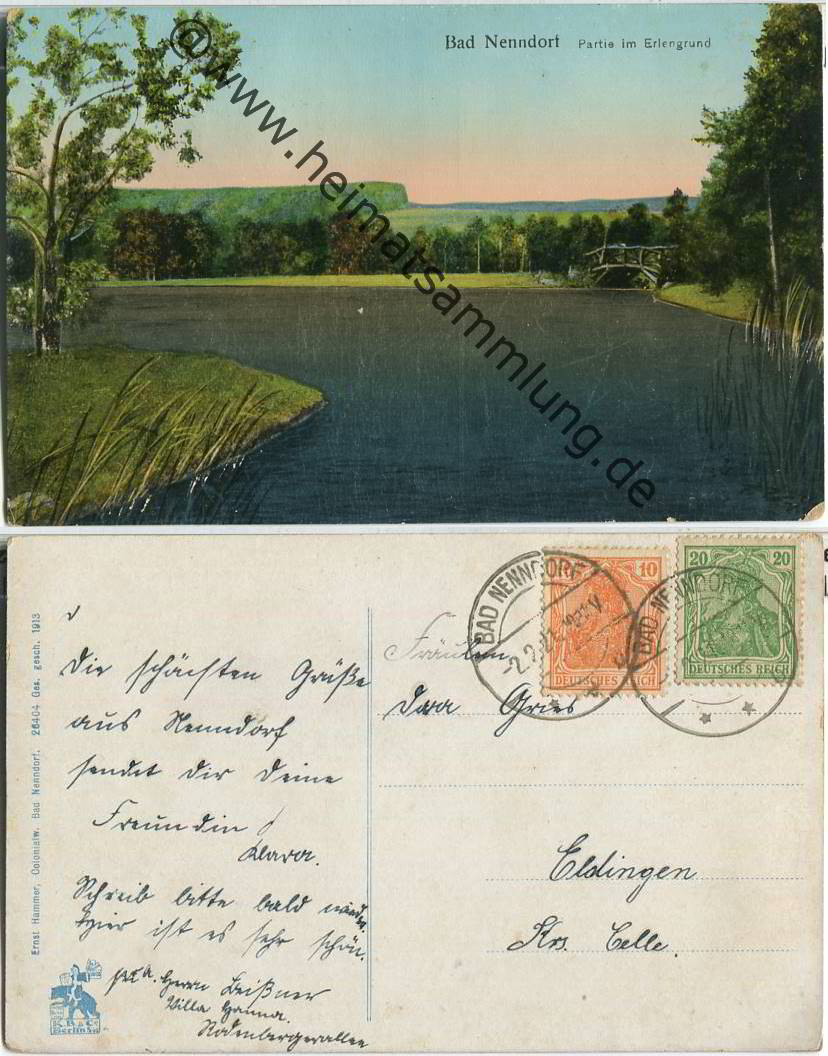 Bad Nenndorf Partie im Erlengrund
@www.heimatsammlung.de
BAD NENNDORF
10
DEUTSCHES REICH
BAD NENNDORF
20 20
DEUTSCHES REICH
Die schönsten Grüße
aus Nenndorf
sendet dir deine
Freundin
Klara.
Schreib bitte bald wieder.
Hier ist es sehr schön.
Herrn Beißner
Villa Hanna.
Rodenbergerallee
Fräulein
Gries
Eldingen
Krs. Celle.
Ernst Hammer, Colonialw. Bad Nenndorf. 26404 Ges. gesch. 1913
K.B.&Co
Berlin